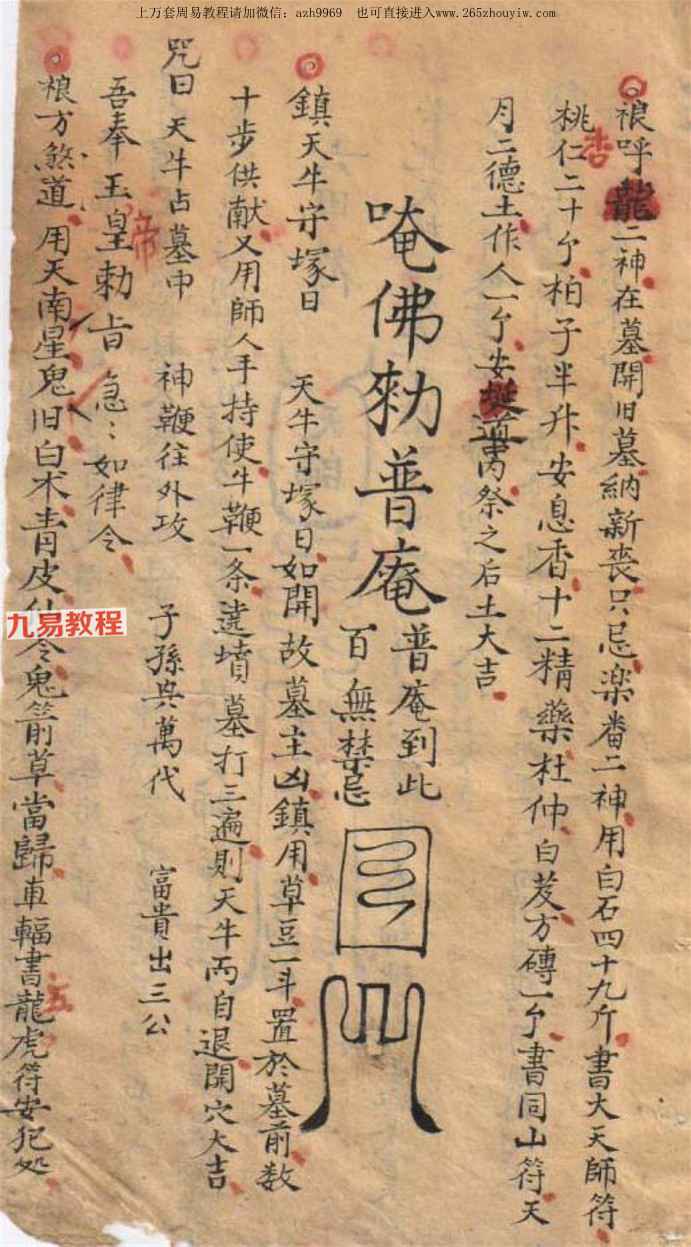 上万套周易教程请加微信：azh9969 也可直接进入www.265zhouyiw.com
裉呼龍二神在墓開旧墓納新喪只忌楽番二神用白石四十九斤書大天師符
桃仁二十个柏子半升安息香十二精藥杜仲白芨方磚一个書同山符天
杏
月二德土作人一个安道内祭之后土大吉
唵佛勅普庵
普庵到此
百無禁忌
鎮天牛守塚日 天牛守塚日如開故墓主凶鎮用草豆一斗置於墓前数
十步供献又用師人手持使牛鞭一条遶墳墓打三遍則天牛两自退開穴大吉
咒曰 天牛占墓中 神鞭往外攻 子孫兴萬代 富貴出三公
吾奉玉皇勅旨急〻如律令
帝
裉方煞道用天南星鬼旧白术青皮 令鬼箭草當歸車輻書龍虎符安犯处
五
九易教程